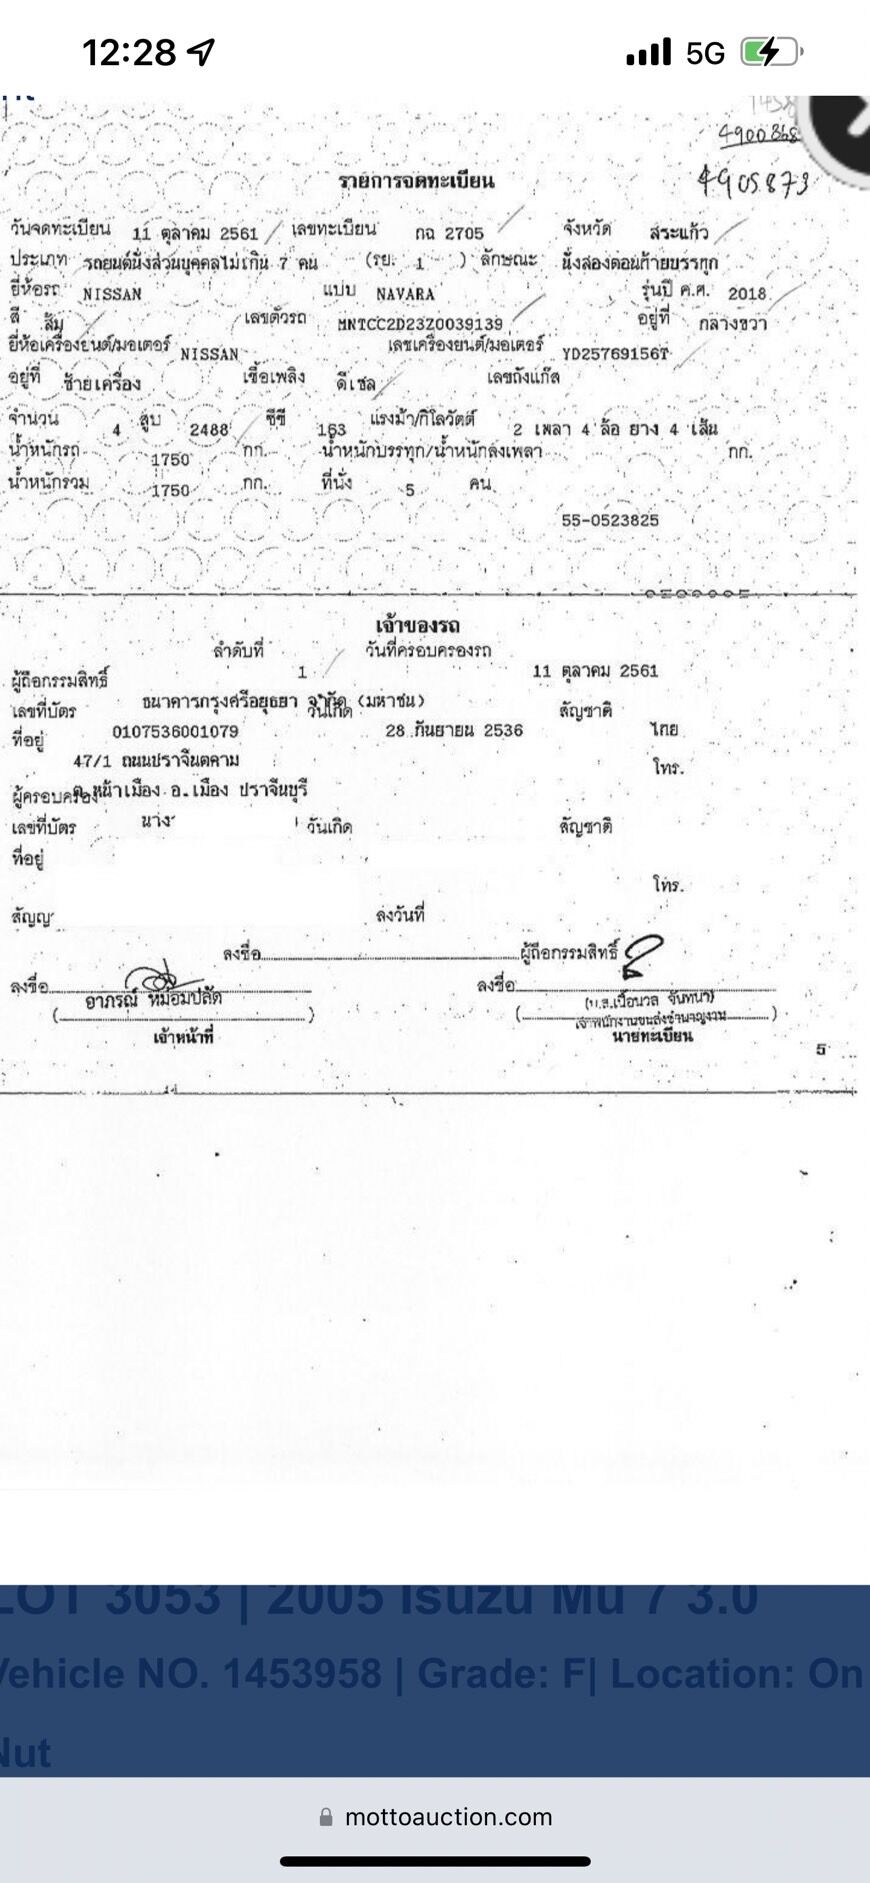 12:28 5G
4900868
4905873
รายการจดทะเบียน
วันจดทะเบียน 11 ตุลาคม 2561 เลขทะเบียน กฉ 2705 จังหวัด สระแก้ว
ประเภท รถยนต์นั่งส่วนบุคคลไม่เกิน 7 คน (รย. 1 ) ลักษณะ นั่งสองตอนท้ายบรรทุก
ยี่ห้อรถ NISSAN แบบ NAVARA รุ่นปี ค.ศ. 2018
สี ส้ม เลขตัวรถ MNTCC2D23Z0039139 อยู่ที่ กลางขวา
ยี่ห้อเครื่องยนต์/มอเตอร์ NISSAN เลขเครื่องยนต์/มอเตอร์ YD25769156T
อยู่ที่ ซ้ายเครื่อง เชื้อเพลิง ดีเซล เลขถังแก๊ส
จำนวน 4 สูบ 2488 ซีซี 163 แรงม้า/กิโลวัตต์ 2 เพลา 4 ล้อ ยาง 4 เส้น
น้ำหนักรถ 1750 กก. น้ำหนักบรรทุก/น้ำหนักลงเพลา กก.
น้ำหนักรวม 1750 กก. ที่นั่ง 5 คน
55-0523825
เจ้าของรถ
ลำดับที่ 1 วันที่ครอบครองรถ 11 ตุลาคม 2561
ผู้ถือกรรมสิทธิ์ ธนาคารกรุงศรีอยุธยา จำกัด (มหาชน)
เลขที่บัตร 0107536001079 วันเกิด 28 กันยายน 2536 สัญชาติ ไทย
ที่อยู่ 47/1 ถนนปราจีนตคาม โทร.
ต.หน้าเมือง อ.เมือง ปราจีนบุรี
ผู้ครอบครอง นาง
เลขที่บัตร วันเกิด สัญชาติ
ที่อยู่
โทร.
สัญญ ลงวันที่
ลงชื่อ ผู้ถือกรรมสิทธิ์
ลงชื่อ ลงชื่อ
อาภรณ์ หม่อมปลัด (น.ส.เนื้อนวล จันทนา)
( ) ( เจ้าพนักงานขนส่งชำนาญงาน )
เจ้าหน้าที่ นายทะเบียน
5
LOT 3053 | 2005 Isuzu Mu 7 3.0
Vehicle NO. 1453958 | Grade: F| Location: On
Nut
mottoauction.com